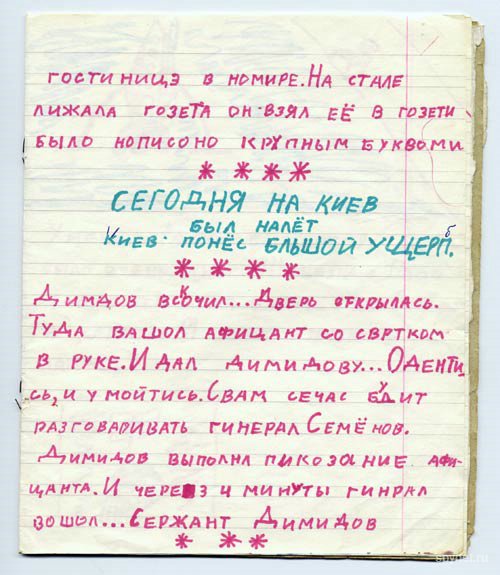 гостинице в номире. На стале
лижала гозета он взял её в гозети
было нописоно крупным буквоми
* * * *
СЕГОДНЯ НА КИЕВ
БЫЛ НАЛЁТ
КИЕВ ПОНЁС БЛЬШОЙ УЩЕРП.
* * * *
Димдов вскочил... Дверь открылась.
Туда вашол афицант со свртком
в руке. И дал димидову... Оденти
сь, и умойтись. С вам сечас будит
разговаривать гинерал Семёнов.
Димидов выполнл пикозание афи-
цанта. И через 4 минуты гинрал
вошол... Сержант Димидов
* * *